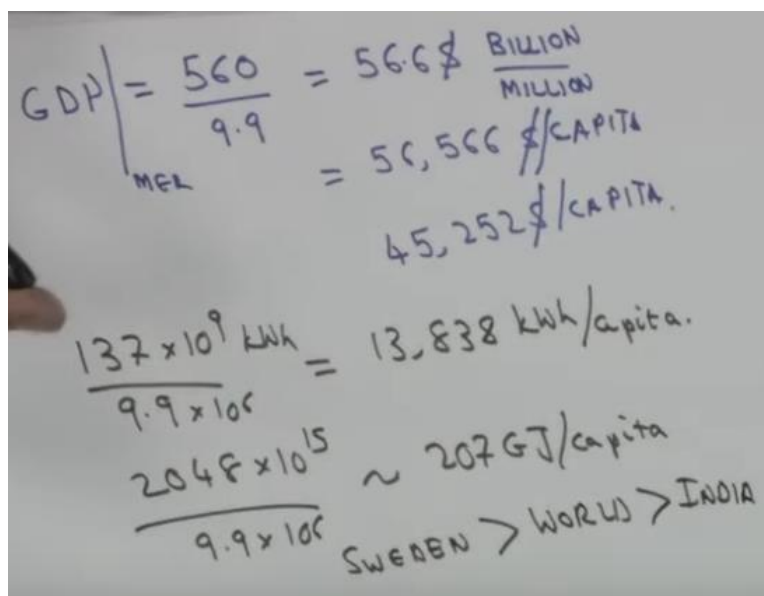 GDP|MER = 560/9.9 = 56.6$ BILLION/MILLION
= 56,566 $/CAPITA
45,252$/CAPITA.
137×10⁹ kWh/9.9×10⁶ = 13,838 kWh/capita.
2048×10¹⁵/9.9×10⁶ ~ 207GJ/capita
SWEDEN > WORLD > INDIA